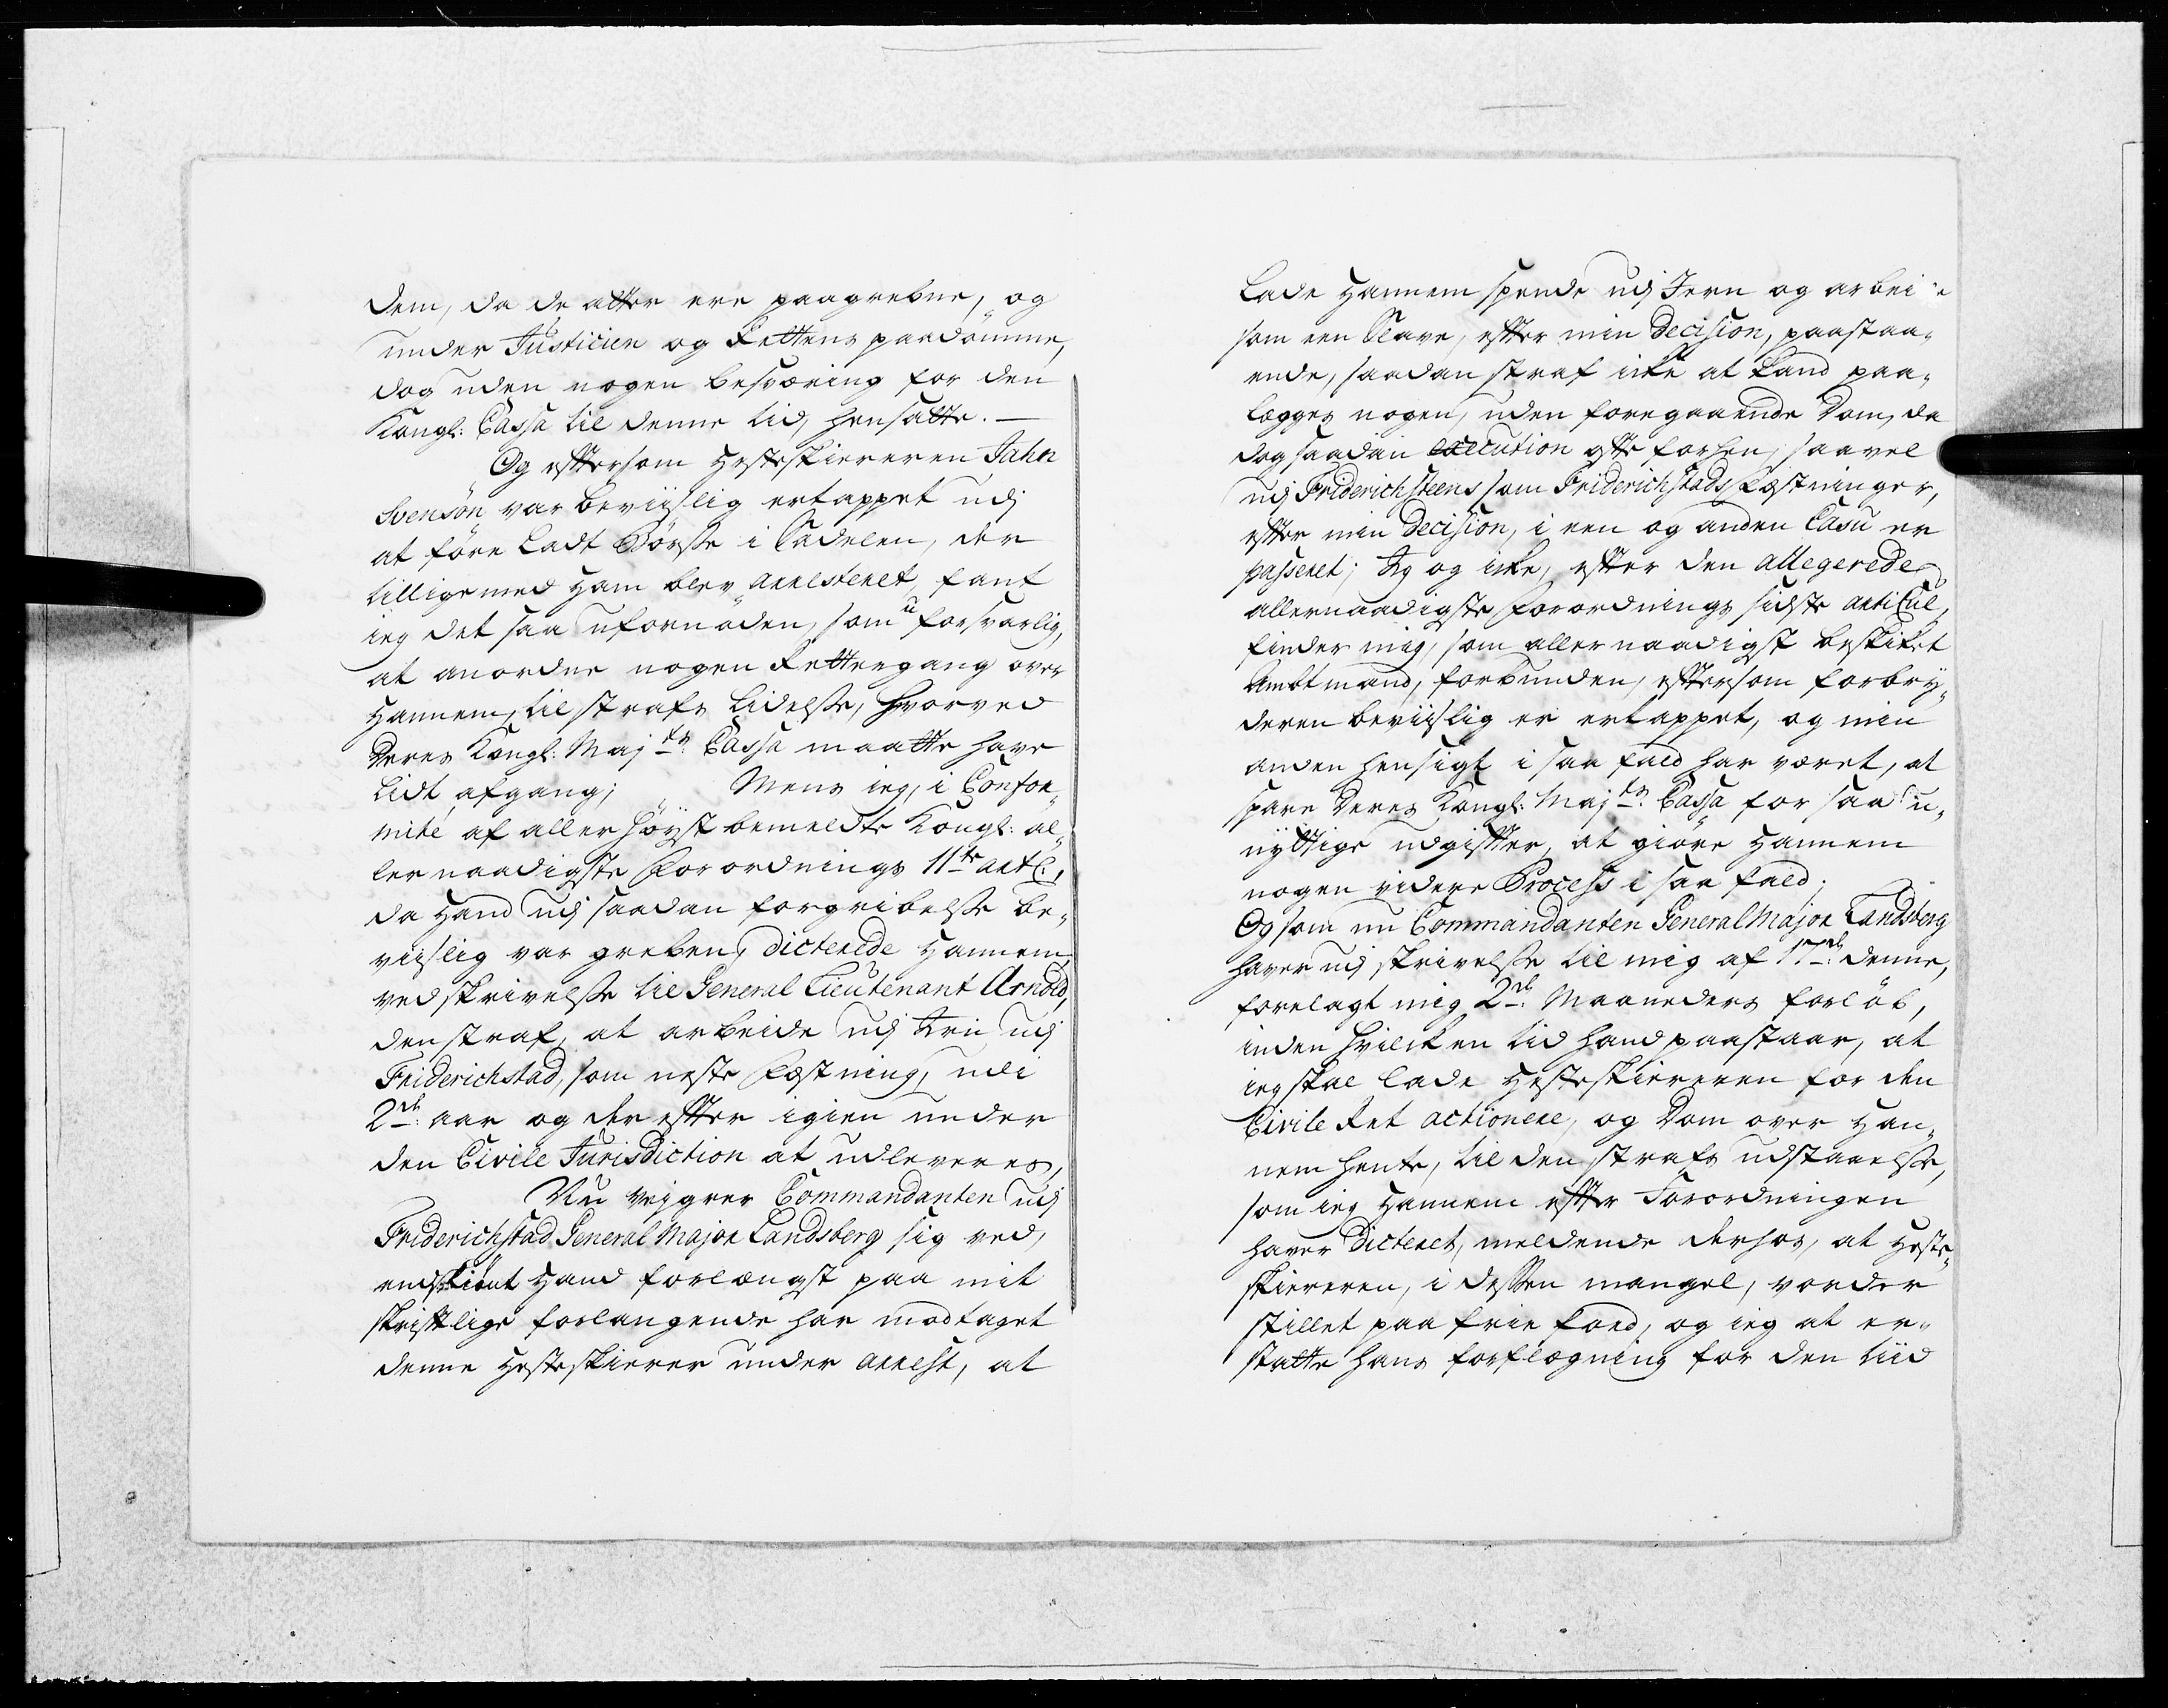 dem, da de atter ere paagrebne, og
under Justicien og Rettens paadømme,
dog uden nogen besværing for den
Kongl: Cassa til denne tid, hensatte.—
Og eftersom Hesteskiereren Jahn
Svensön var beviislig ertappet udj
at före Ladt Börsse i Sadelen, der
tilligemed ham blev arresteret, fant
ieg det saa ufornøden, som uforsvarlig,
at anordne nogen Rettergang over
Hannem, til strafs Lidelsse, hvorved
Deres Kongl: Maj ts: Cassa maatte have
Lidt afgang; Mens ieg, i Confor„
mité af allerhöyst bemeldte Kongl: al„
lernaadigste Forordnings 11te artl:,
da Hand udj saadan forgribelsse be„
viislig var greben, dicterede Hannem,
ved skrivelsse til General Lieutenant Arnold,
den straf, at arbeide udj Jern udj
Friderichstad, som neste Fæstning, udi
2de: aar og derefter igien under
den Civile Jurisdiction at udleveres,
Nu veigrer Commandanten udj
Friderichstad General Major Landsberg sig ved,
endskiönt Hand forlængst paa mit
skriftlige forlangende har modtaget
denne Hesteskierer under arrest, at
Lade Hannem spende udj Jern og arbeide
som een Slave, efter min Decision, paastaa„
ende, saadan straf icke at kand paa„
lægges nogen, uden foregaaende Dom, da
dog saadan Execution ofte forhen, saavel
udj Friderichsteens som Friderichstads Fæstninger,
efter min Decision, i een og anden Casu er
passeret; Jeg og icke, efter den allegerede
allernaadigste Forordnings sidste articul,
finder mig, som allernaadigst beskiket
Ambtmand, forbunden, eftersom forbry„
deren beviislig er ertappet, og min
anden hensigt i saa fald har været, at
spare Deres Kongl: Maj ts: Cassa for saa u„
nyttige udgifter, at giöre Hannem
nogen videre Process i saa fald;
Og som nu Commandanten General Major Landsberg
haver udj skrivelsse til mig af 17de: denne,
forelagt mig 2de: Maaneders forlöb,
inden hvilcken tid hand paastaar, at
ieg skal lade Hesteskiereren for den
Civile Ret actionere, og Dom over Han„
nem hente, til den strafs udstaaelsse,
som ieg Hannem efter Forordningen
haver dicteret, meldende derhos, at Heste„
skiereren, i dessen mangel, vorder
stillet paa frie foed, og ieg at er„
statte hans forplægning for den tiid